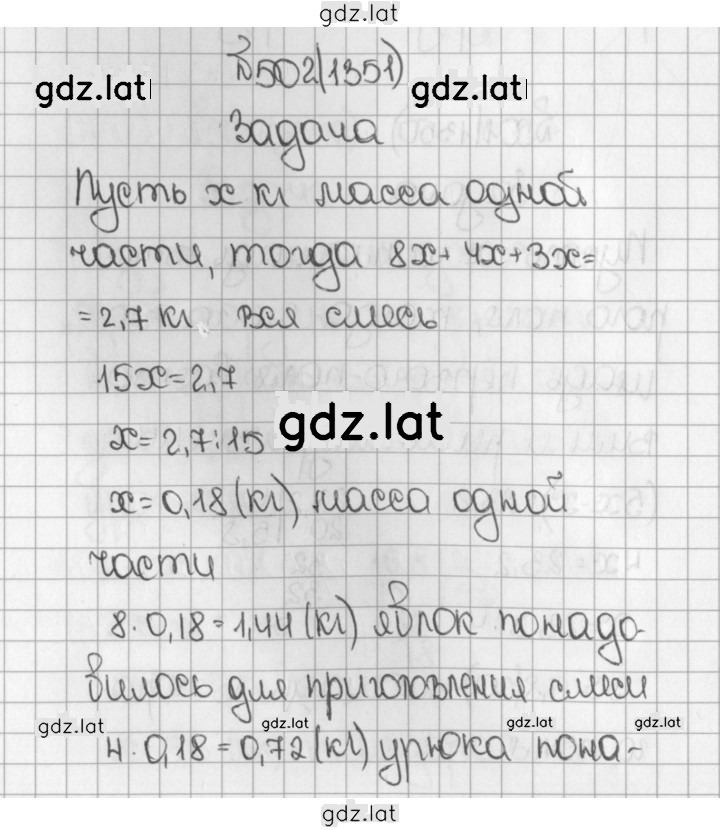 gdz.lat
№502(1351)
gdz.lat gdz.lat
Задача
Пусть x кг масса одной
части, тогда 8x+4x+3x=
=2,7 кг вся смесь
15x=2,7
x=2,7:15
gdz.lat
x=0,18(кг) масса одной
части
8·0,18=1,44(кг) яблок понадо-
билось для приготовления смеси
gdz.lat gdz.lat gdz.lat gdz.lat
4·0,18=0,72(кг) урюка пона-
gdz.lat